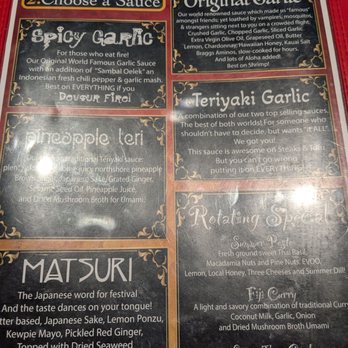 2. Choose a Sauce
Spicy Garlic
For those who eat fire!
Our Original World Famous Garlic Sauce
with an addition of "Sambal Oelek" an
Indonesian fresh chili pepper & garlic mash.
Best on EVERYTHING if you
Devour Fire!
pineapple teri
traditional Teriyaki sauce:
juicy northshore pineapple
Japanese Sake, Grated Ginger,
Sesame Seed Oil, Pineapple Juice,
and Dried Mushroom Broth for Umami.
MATSURI
The Japanese word for festival
And the taste dances on your tongue!
tter based, Japanese Sake, Lemon Ponzu,
Kewpie Mayo, Pickled Red Ginger,
Topped with Dried Seaweed
Original Garlic
Our world renowned sauce which made us "famous"
amongst friends; yet loathed by vampires, mosquitos,
& strangers sitting next to you on a crowded flight.
Crushed Garlic, Chopped Garlic, Sliced Garlic
Extra Virgin Olive Oil, Grapeseed Oil, Butter
Lemon, Chardonnay, Hawaiian Honey, Kauai Salt
Braggs Aminos, slow-cooked for hours
And lots of Aloha added!
Best on Shrimp!
Teriyaki Garlic
combination of our two top selling sauces.
The best of both worlds! For someone who
shouldn't have to decide, but wants "it ALL"
We got you!
This sauce is awesome on Steaks &
But you can't go wrong
putting it on EVERYTHING
Rotating Special
Summer Pesto
Fresh ground sweet Thai Basil,
Macadamia Nuts and Pine Nuts, EVOO,
Lemon, Local Honey, Three Cheeses and Summer Dill!
Fiji Curry
A light and savory combination of traditional Curry
Coconut Milk, Garlic, Onion
and Dried Mushroom Broth Umami